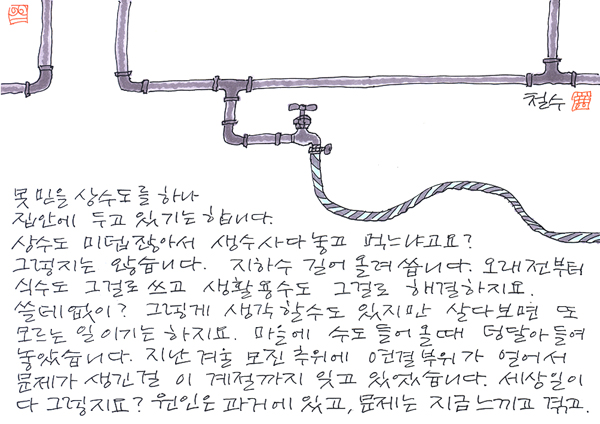 철수
못 믿을 상수도를 하나
집안에 두고 있기는 합니다.
상수도 미덥잖아서 생수 사다 놓고 먹느냐고요?
그렇지는 않습니다. 지하수 길어 올려 씁니다. 오래전부터
식수도 그걸로 쓰고 생활용수도 그걸로 해결하지요.
쓸데없이? 그렇게 생각할수도 있지만 살다보면 또
모르는 일이기는 하지요. 마을에 수도 들어올때 덩달아 들여
놓았습니다. 지난 겨울 모진 추위에 연결부위가 얼어서
문제가 생긴걸 이 계절까지 잊고 있었습니다. 세상일이
다 그렇지요? 원인은 과거에 있고, 문제는 지금 느끼고 겪고.